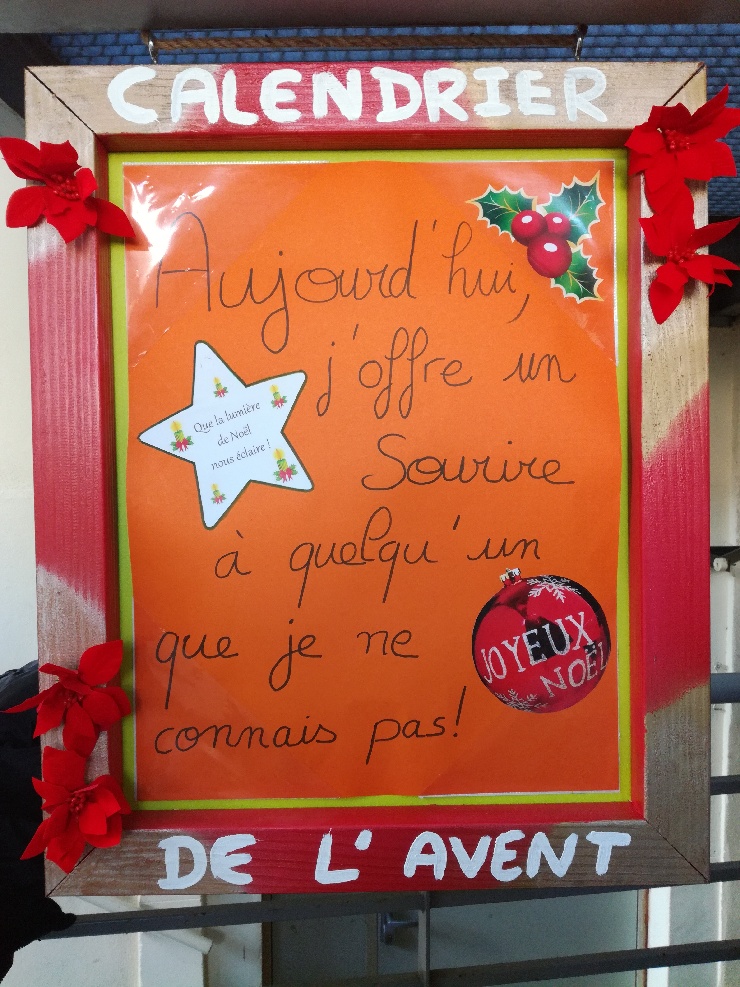 CALENDRIER
Aujourd'hui,
j'offre un
Sourire
à quelqu'un
que je ne
connais pas!
Que la lumière
de Noël
nous éclaire !
JOYEUX
NOËL
DE L'AVENT